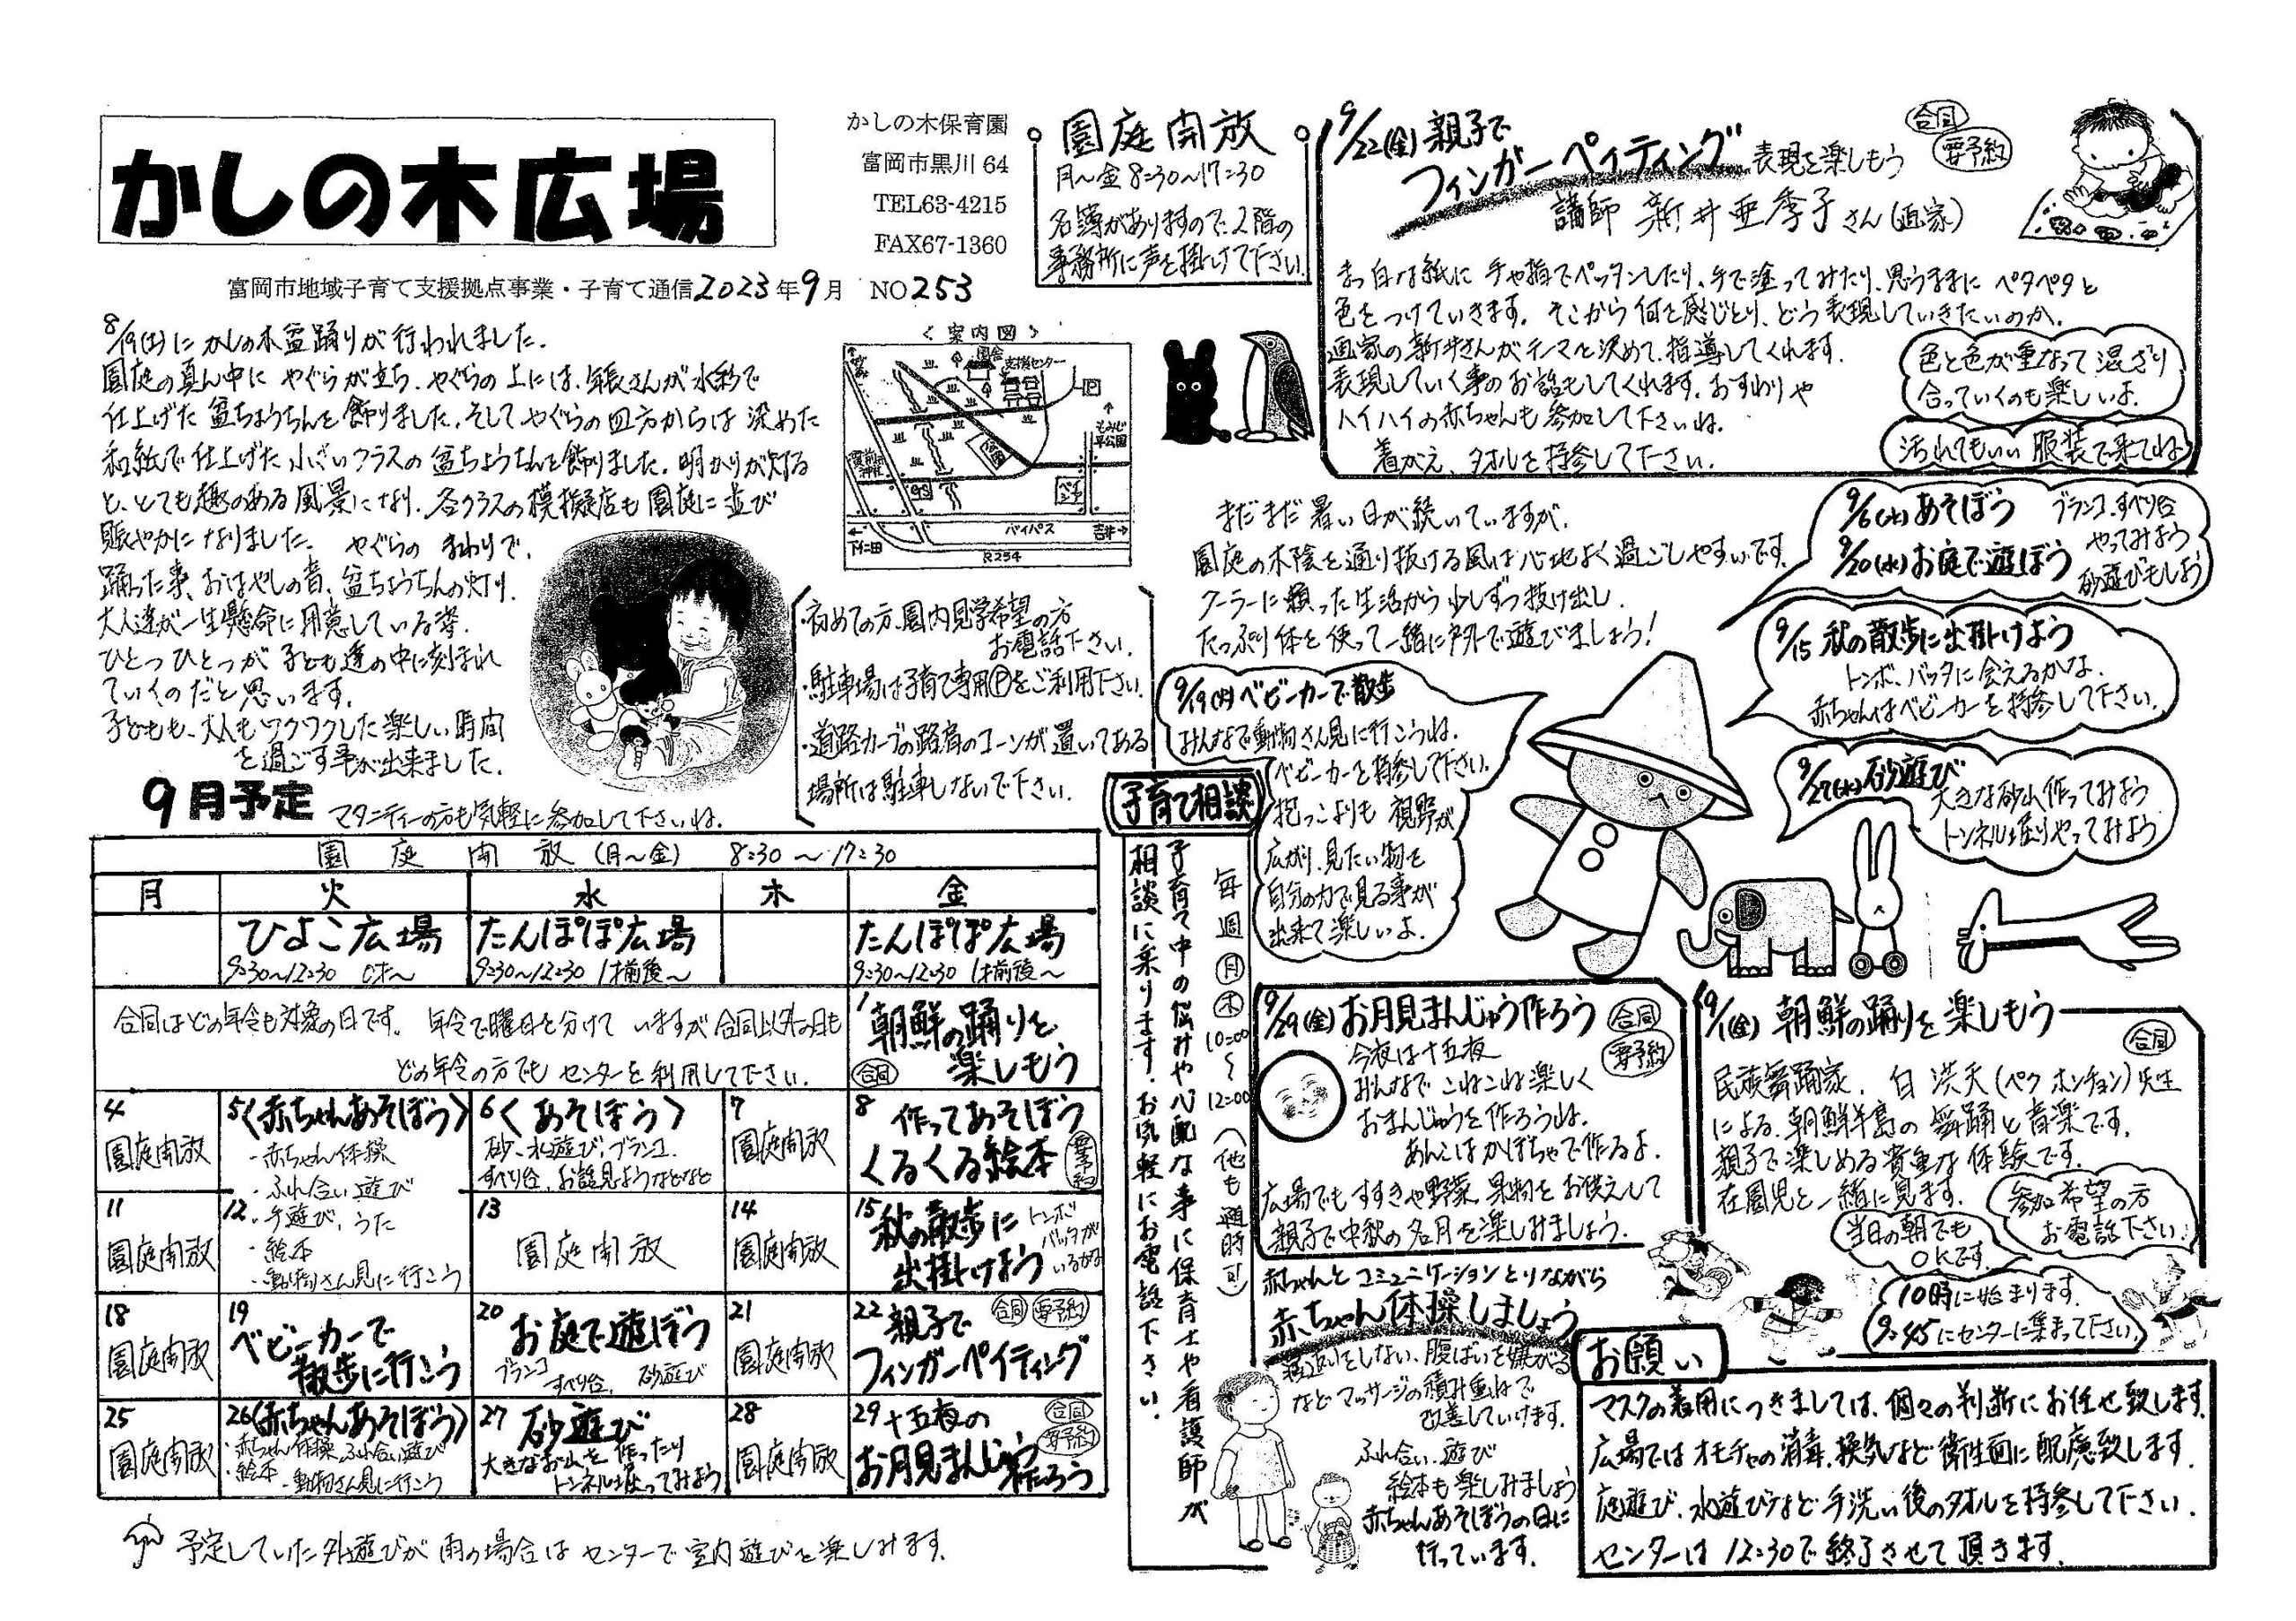 かしの木広場
かしの木保育園
富岡市黒川 64
TEL63-4215
FAX67-1360
富岡市地域子育て支援拠点事業・子育て通信2023年9月 NO253
園庭開放
月～金 8:30～17:30
名簿がありますので、2階の
事務所に声を掛けて下さい。
9/22(金)親子で
フィンガーペイティング 表現を楽しもう
合同
要予約
講師 新井亜季子さん(画家)
まっ白な紙に 手や指でペッタンしたり、手で塗ってみたり、思うままに ペタペタと
色をつけていきます。そこから何を感じとり、どう表現していきたいのか。
画家の新井さんがテーマを決めて、指導してくれます。
表現していく事のお話もしてくれます。おすわりや
ハイハイの赤ちゃんも参加して下さいね。
着がえ、タオルを持参して下さい。
色と色が重なって混ざり
合っていくのも楽しいよ。
汚れてもいい服装で来てね
8/19(土)にかしの木盆踊りが行われました。
園庭の真ん中に やぐらが立ち、やぐらの上には、年長さんが水彩で
仕上げた盆ちょうちんを飾りました。そしてやぐらの四方からは 染めた
和紙で仕上げた小さいクラスの盆ちょうちんを飾りました。明かりが灯る
と、とても趣のある風景になり、各クラスの模擬店も園庭に並び
賑やかになりました。 やぐらの まわりで、
踊った事、おはやしの音、盆ちょうちんの灯り、
大人達が一生懸命に用意している姿、
ひとつひとつが 子ども達の中に刻まれ
ていくのだと思います。
子どもも、大人もワクワクした楽しい時間
を過ごす事が出来ました。
<案内図>
支援センター
もみじ
平公園
GS
バイパス
下仁田
吉井→
R254
・初めての方、園内見学希望の方
お電話下さい。
・駐車場は子育て専用Ⓟをご利用下さい。
・道路カーブの路肩のコーンが置いてある
場所は駐車しないで下さい。
まだまだ暑い日が続いていますが、
園庭の木陰を通り抜ける風は心地よく過ごしやすいです。
クーラーに頼った生活から少しずつ抜け出し、
たっぷり体を使って一緒に戸外で遊びましょう!
9/6(水)あそぼう ブランコ、すべり台
やってみよう
9/20(水)お庭で遊ぼう 砂遊びもしよう
9/15 秋の散歩に出掛けよう
トンボ、バッタに会えるかな。
赤ちゃんはベビーカーを持参して下さい。
9/27(水)砂遊び
大きな砂山作ってみよう
トンネル堀りやってみよう
9/19(火)ベビーカーで散歩
みんなで動物さん見に行こうね。
ベビーカーを持参して下さい。
抱っこよりも 視野が
広がり、見たい物を
自分の力で見る事が
出来て楽しいよ。
9月予定 マタニティーの方も気軽に参加して下さいね。
園庭開放(月～金) 8:30～17:30
月 火 水 木 金
ひよこ広場 たんぽぽ広場 たんぽぽ広場
9:30～12:30 0才～ 9:30～12:30 1才前後～ 9:30～12:30 1才前後～
合同はどの年令も対象の日です。 年令で曜日を分けて いますが合同以外の日も
どの年令の方でもセンターを利用して下さい。
1 朝鮮の踊りを
楽しもう
合同
4
園庭開放
5〈赤ちゃんあそぼう〉
・赤ちゃん体操
・ふれ合い遊び
・手遊び、うた
・絵本
・動物さん見に行こう
6〈あそぼう〉
砂、水遊び、ブランコ、
すべり台、お話見ようなどなど
7
園庭開放
8 作ってあそぼう
くるくる絵本
要予約
11
園庭開放
12
13
園庭開放
14
園庭開放
15 秋の散歩に
出掛けよう
トンボ
バッタが
いるかな
18
園庭開放
19
ベビーカーで
散歩に行こう
20 お庭で遊ぼう
ブランコ
すべり台、 砂遊び
21
園庭開放
22 親子で
フィンガーペイティング
合同
要予約
25
園庭開放
26〈赤ちゃんあそぼう〉
・赤ちゃん体操、ふれ合い遊び
・絵本
・動物さん見に行こう
27 砂遊び
大きなお山を作ったり
トンネル堀ってみよう
28
園庭開放
29 十五夜の
お月見まんじゅう
作ろう
合同
要予約
予定していた外遊びが雨の場合はセンターで室内遊びを楽しみます。
子育て相談
毎週 月 木 10:00～12:00 (他も随時可)
子育て中の悩みや心配な事に保育士や看護師が
相談に乗ります。お気軽にお電話下さい。
9/29(金)お月見まんじゅう作ろう
合同
要予約
今夜は十五夜
みんなで こねこね楽しく
おまんじゅうを作ろうね。
あんこはかぼちゃで作るよ。
広場でもすすきや野菜、果物をお供えして
親子で中秋の名月を楽しみましょう。
9/1(金) 朝鮮の踊りを楽しもう
合同
民族舞踊家、白 洪天(ペク ホンチョン)先生
による、朝鮮半島の舞踊と音楽です。
親子で楽しめる貴重な体験です。
在園児と一緒に見ます。
参加希望の方
お電話下さい。
当日の朝でも
OKです。
10時に始まります。
9:45にセンターに集まって下さい。
赤ちゃんとコミュニケーションとりながら
赤ちゃん体操しましょう
寝返りをしない、腹ばいを嫌がる
などマッサージの積み重ねで
改善していけます。
ふれ合い遊び
絵本も楽しみましょう
赤ちゃんあそぼうの日に
行っています。
お願い
マスクの着用につきましては、個々の判断にお任せ致します。
広場ではオモチャの消毒、換気など衛生面に配慮致します。
庭遊び、水遊びなど手洗い後のタオルを持参して下さい。
センターは 12:30で終了させて頂きます。